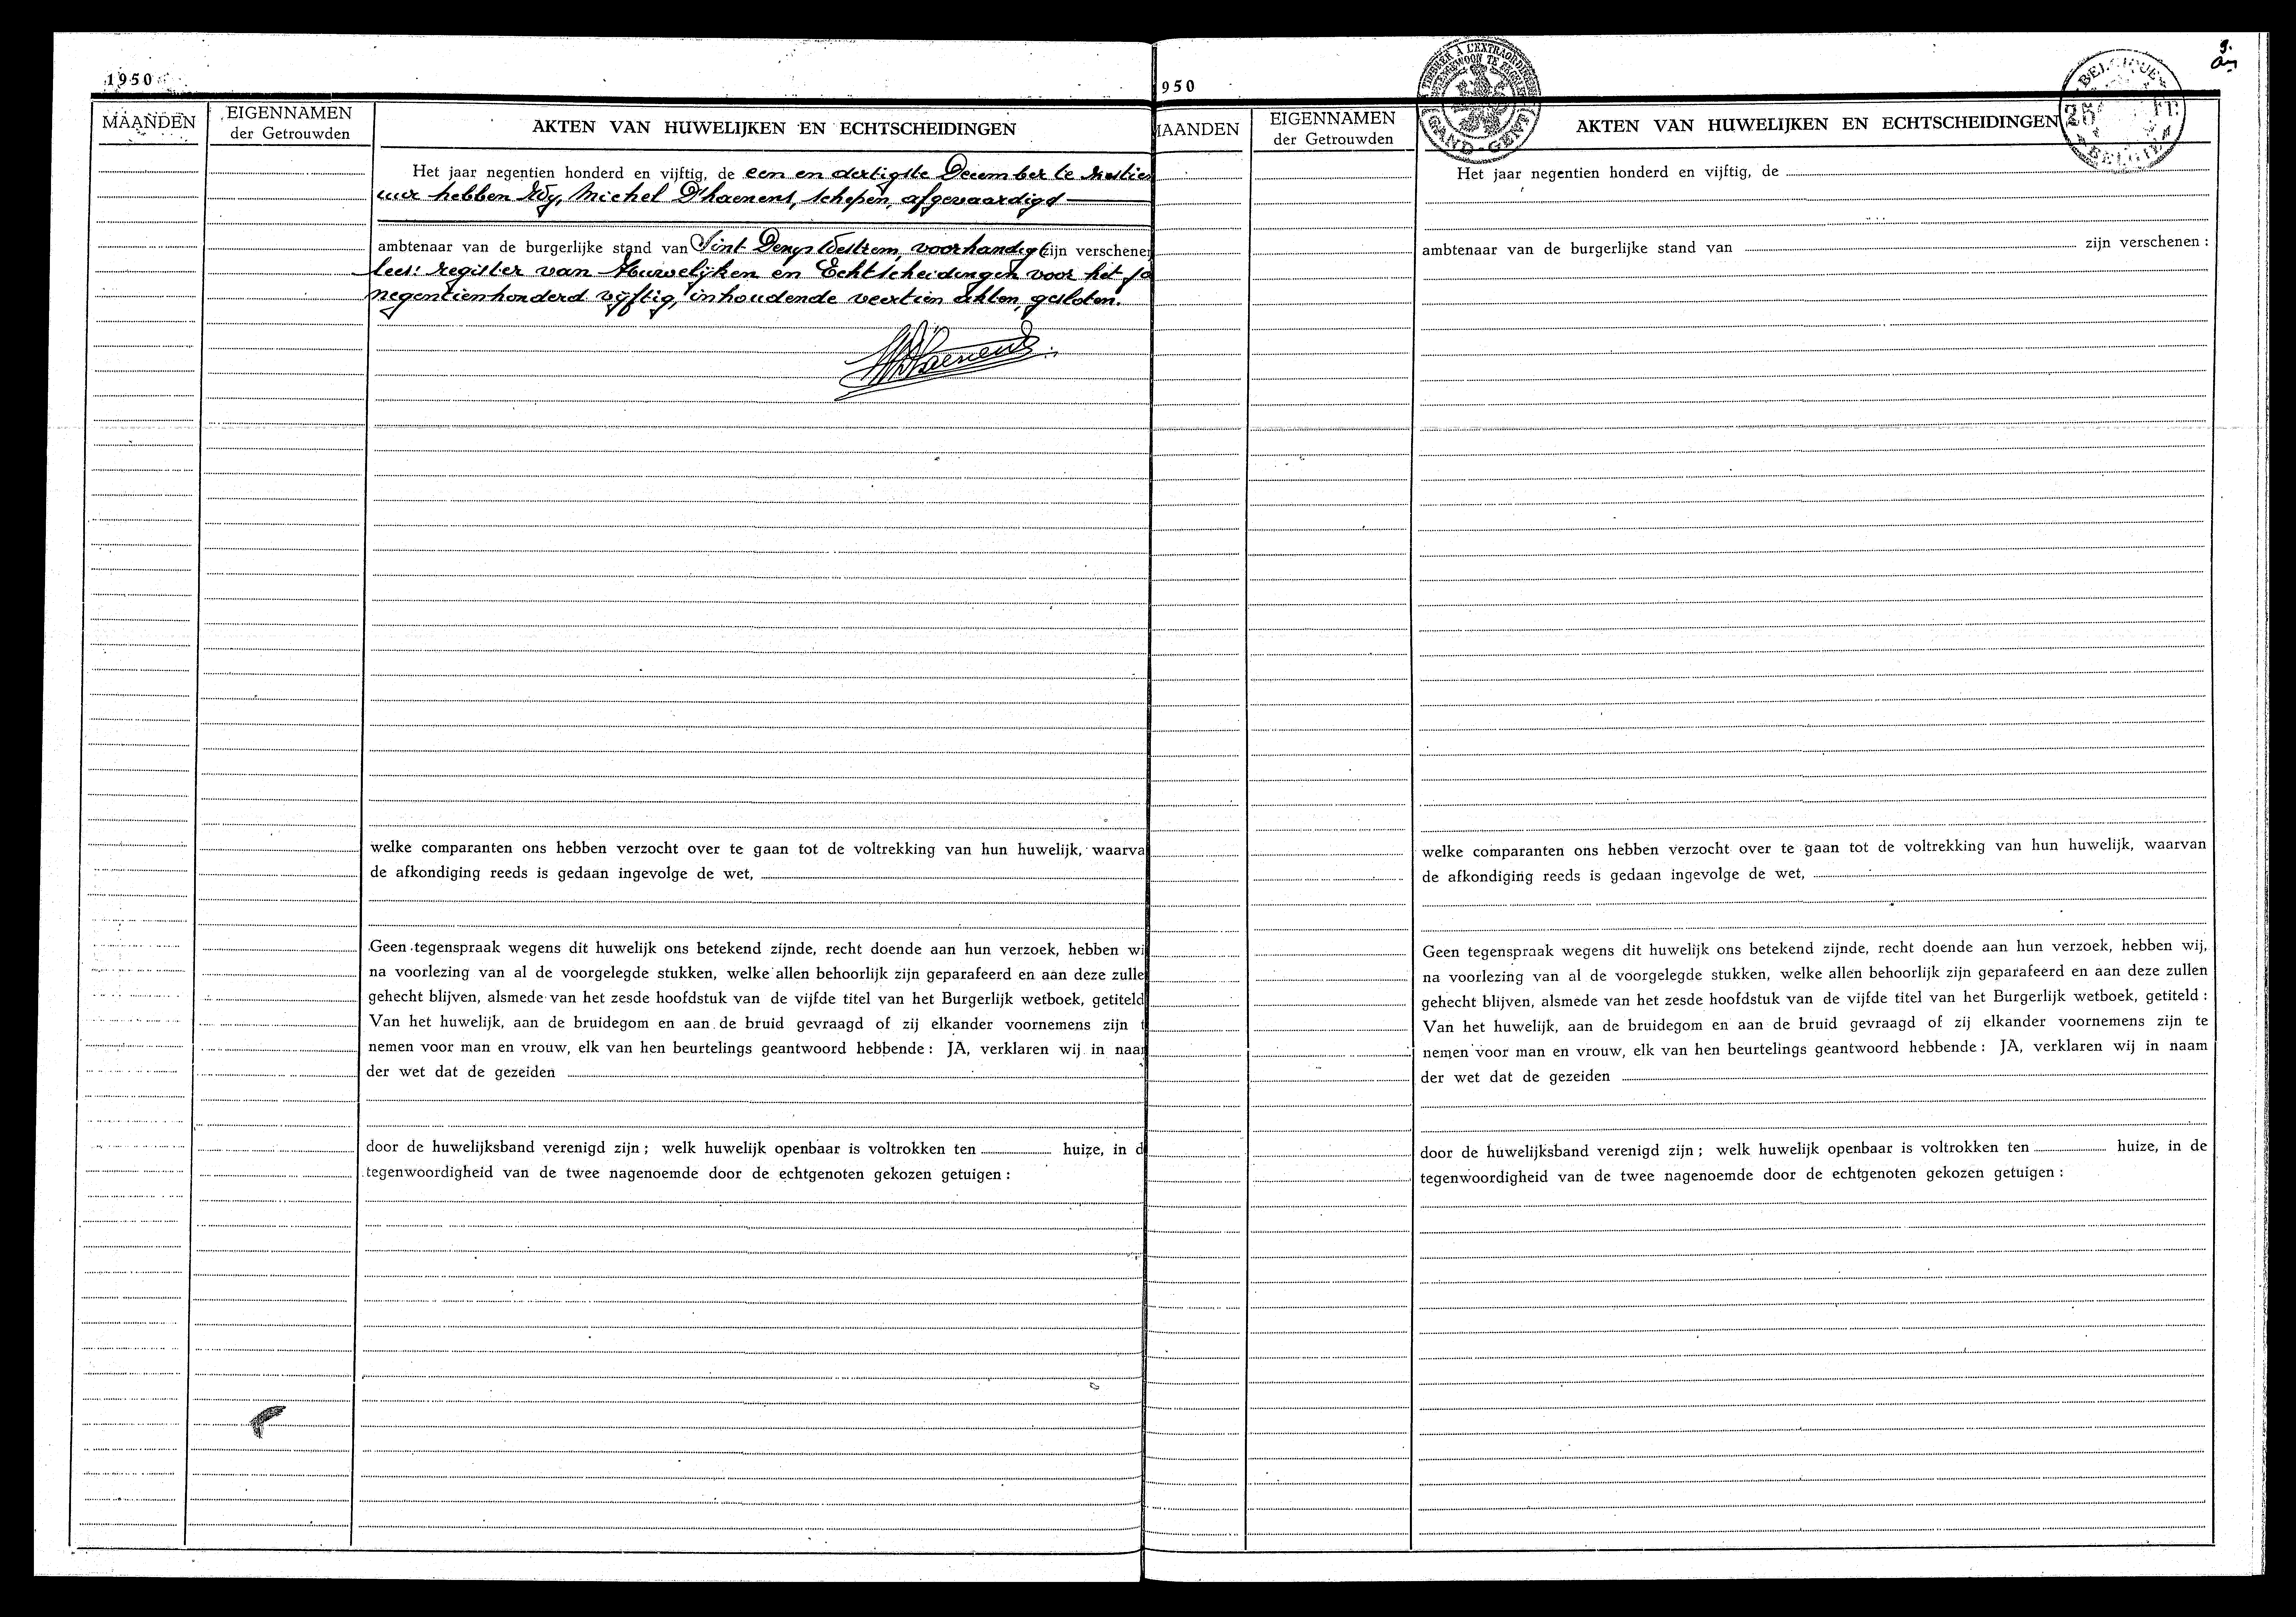 1950
MAANDEN
EIGENNAMEN
der Getrouwden
AKTEN VAN HUWELIJKEN EN ECHTSCHEIDINGEN
Het jaar negentien honderd en vijftig, de een en dertigste December te
uur hebben Wij, Michel D'haenens, schepen, afgevaardigd
ambtenaar van de burgerlijke stand van Sint Denys Westrem, voorhandig zijn verschenen
lees: register van Huwelijken en Echtscheidingen voor het ja
negentienhonderd vijftig, inhoudende veertien akten, gesloten.
welke comparanten ons hebben verzocht over te gaan tot de voltrekking van hun huwelijk, waarva
de afkondiging reeds is gedaan ingevolge de wet,
Geen tegenspraak wegens dit huwelijk ons betekend zijnde, recht doende aan hun verzoek, hebben wi
na voorlezing van al de voorgelegde stukken, welke allen behoorlijk zijn geparafeerd en aan deze zulle
gehecht blijven, alsmede van het zesde hoofdstuk van de vijfde titel van het Burgerlijk wetboek, getiteld
Van het huwelijk, aan de bruidegom en aan de bruid gevraagd of zij elkander voornemens zijn t
nemen voor man en vrouw, elk van hen beurtelings geantwoord hebbende : JA, verklaren wij in naam
der wet dat de gezeiden
door de huwelijksband verenigd zijn ; welk huwelijk openbaar is voltrokken ten huize, in d
tegenwoordigheid van de twee nagenoemde door de echtgenoten gekozen getuigen :
950
TIMBRER A L'EXTRAORDINAIRE
GAND - GENT
BELGIQUE
BELGIE
9.
IAANDEN
EIGENNAMEN
der Getrouwden
AKTEN VAN HUWELIJKEN EN ECHTSCHEIDINGEN
Het jaar negentien honderd en vijftig, de
ambtenaar van de burgerlijke stand van zijn verschenen :
welke comparanten ons hebben verzocht over te gaan tot de voltrekking van hun huwelijk, waarvan
de afkondiging reeds is gedaan ingevolge de wet,
Geen tegenspraak wegens dit huwelijk ons betekend zijnde, recht doende aan hun verzoek, hebben wij,
na voorlezing van al de voorgelegde stukken, welke allen behoorlijk zijn geparafeerd en aan deze zullen
gehecht blijven, alsmede van het zesde hoofdstuk van de vijfde titel van het Burgerlijk wetboek, getiteld :
Van het huwelijk, aan de bruidegom en aan de bruid gevraagd of zij elkander voornemens zijn te
nemen voor man en vrouw, elk van hen beurtelings geantwoord hebbende : JA, verklaren wij in naam
der wet dat de gezeiden
door de huwelijksband verenigd zijn ; welk huwelijk openbaar is voltrokken ten huize, in de
tegenwoordigheid van de twee nagenoemde door de echtgenoten gekozen getuigen :